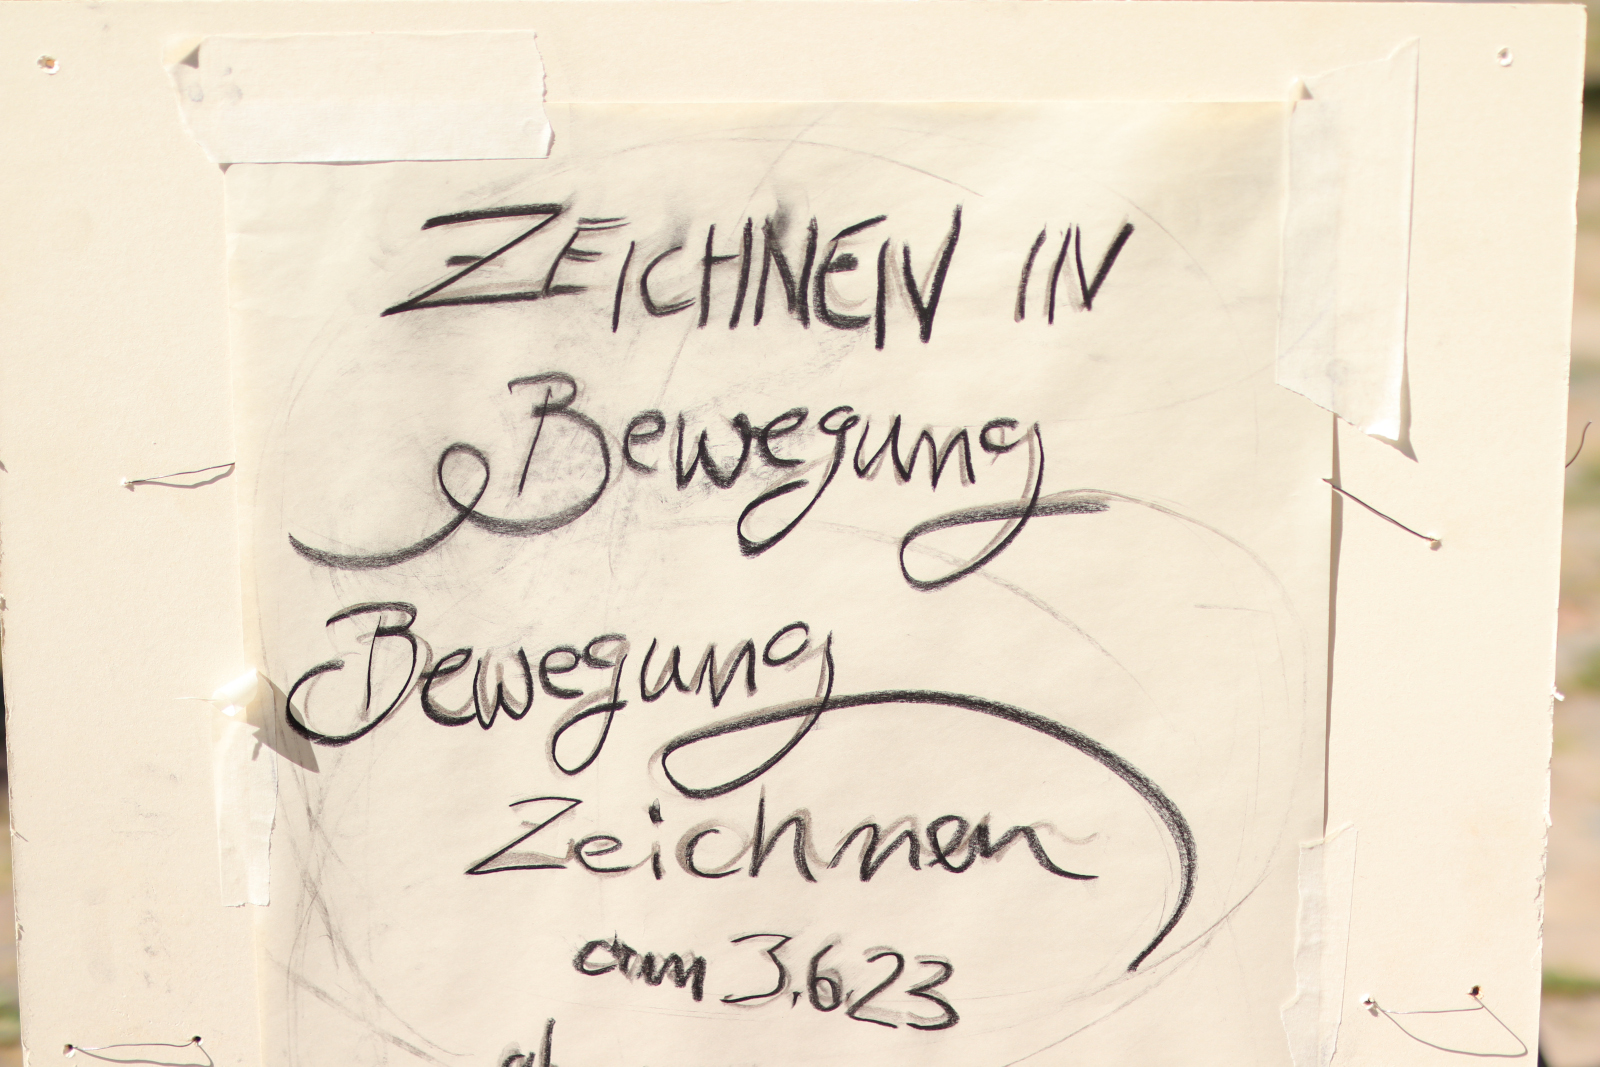 ZEICHNEN IN
Bewegung
Bewegung
Zeichnen
am 3.6.23
ab